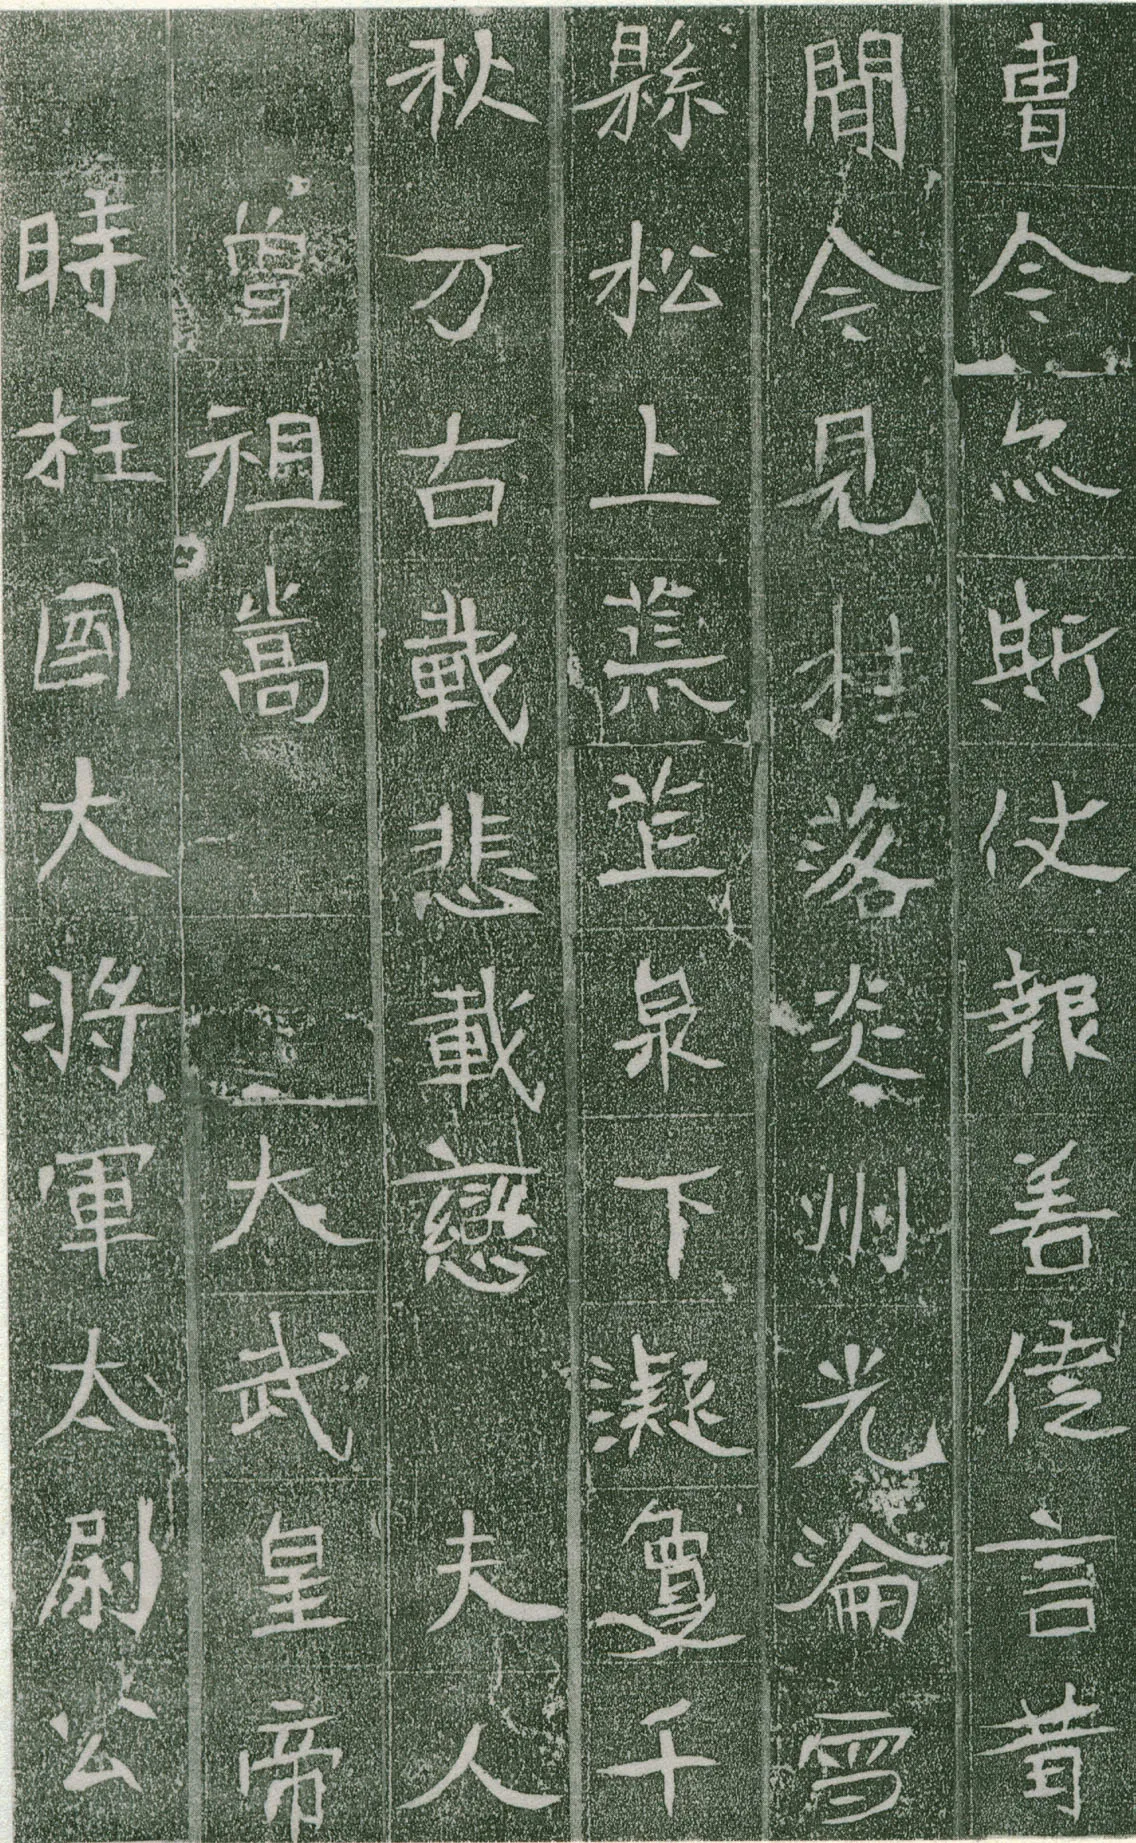 曹令亦斯仗報善言昔
聞今見桂落炎州光淪雪
縣松上荒芒泉下凝夐千
秋万古載悲載戀夫人
曾祖嵩大武皇帝
時柱國大將軍太尉公